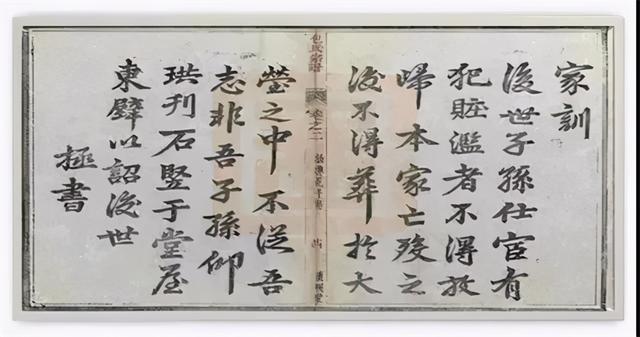 家訓
後世子孫仕宦有
犯賍濫者不得放
歸本家亡歿之
後不得葬於大
包氏宗譜
卷之二
塋之中不從吾
志非吾子孫仰
珙刊石竪于堂屋
東壁以詔後世
拯書